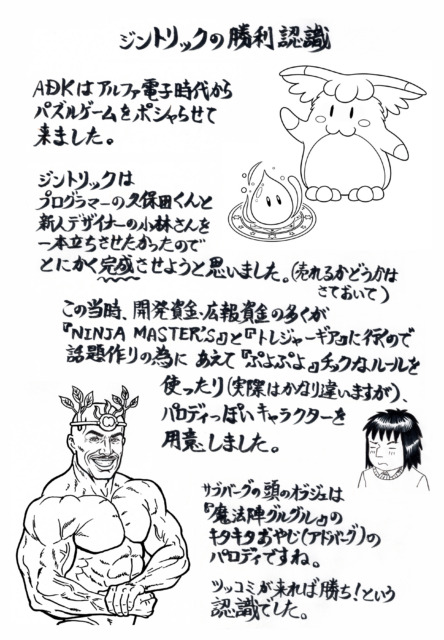 ジントリックの勝利認識
ADKはアルファ電子時代から
パズルゲームをポシャらせて
来ました。
ジントリックは
プログラマーの久保田くんと
新人デザイナーの小林さんを
一本立ちさせたかったので
とにかく完成させようと思いました。(売れるかどうかは
さておいて)
この当時、開発資金・広報資金の多くが
『NINJA MASTER'S』と『トレジャーギア』に行くので
話題作りの為に あえて『ぷよぷよ』チックなルールを
使ったり(実際はかなり違いますが)、
パロディっぽいキャラクターを
用意しました。
サブバーグの頭のオブジェは
『魔法陣グルグル』の
キタキタおやじ(アドバーグ)の
パロディですね。
ツッコミが来れば勝ち!という
認識でした。